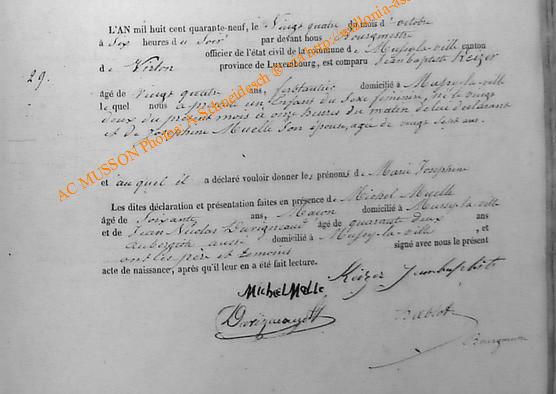 L'AN mil huit cent quarante-neuf, le Vingt quatre du mois d'octobre
à Six heures du Soir par devant nous Bourgmestre
officier de l'état civil de la commune de Mussy-la-ville canton
de Virton province de Luxembourg, est comparu Jean baptiste Keizer
29.
âgé de Vingt quatre ans, ferblantier domicilié à Mussy-la-ville
lequel nous a présenté un Enfant du Sexe féminin, né le vingt
deux du présent mois à onze heures du matin de lui déclarant
et de Josephine Muelle Son épouse, age de vingt Sept ans.
et auquel il a déclaré vouloir donner les prénoms de Marie Josephine
Les dites déclaration et présentation faites en présence de Michel Muelle
âgé de Soixante ans, Maçon domicilié à Mussy-la-ville
et de Jean Nicolas âgé de quarante deux ans
aubergiste aussi domicilié à Mussy-la-ville , et
ont les père et témoins signé avec nous le présent
acte de naissance, après qu'il leur en a été fait lecture.
Keizer Jean baptist
Michel Melle
Bourgmestre
AC MUSSON Photos A.Schneidesch @ cita http://wallonia-as